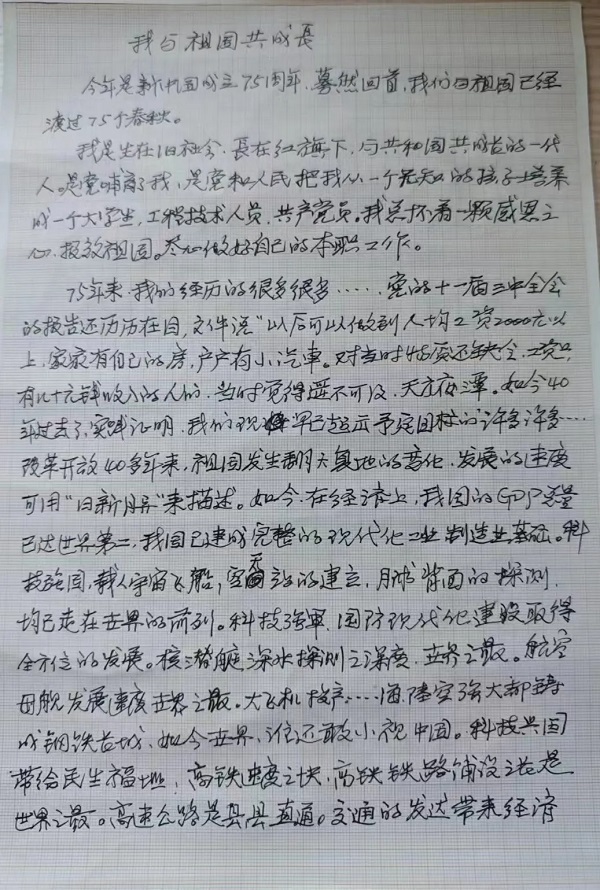 我与祖国共成長
今年是新中国成立75周年,蓦然回首,我们的祖国已经
渡过75个春秋。
我是生在旧社会、長在红旗下,与共和国共成长的一代
人。是党哺育了我,是党和人民把我从一个无知的孩子培养
成一个大学生,工程技术人员,共产党员。我总怀着一颗感恩之
心,报效祖国。尽心做好自己的本职工作。
75年来,我们经历的很多很多……党的十一届三中全会
的报告还历历在目,文件说"以后可以做到人均工资2000元以
上,家家有自己的房,户户有小汽車。对当时物资还缺乏,工资只
有几十元钱收入的人们,当时觉得遥不可及,天方夜潭。如今40
年过去了,实践证明,我们的现早已超出予定目标的许多许多…
改革开放40多年来,祖国发生翻天复地的变化,发展的速度
可用"日新月异"来描述。如今,在经济上,我国的GDP总量
已达世界第二,我国已建成完整的现代化工业制造业基础。科
技强国,载人宇宙飞船,空天站的建立,月球背面的探测,
均已走在世界的前列。科技强軍,国防现代化建設取得
全方位的发展。核潜艇深水探测之深度,世界之最。航空
母舰发展速度世界之最。大飞机投产……海陆空强大部鋳
成钢铁长城,如今世界,谁还敢小视中国。科技兴国
带给民生福址,高铁速度之快,高铁铁路铺设之长是
世界之最。高速公路是县县直通。交通的发达带来经濟